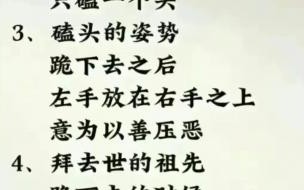 只磕一个头
3、磕头的姿势
跪下去之后
左手放在右手之上
意为以善压恶
4、拜去世的祖先